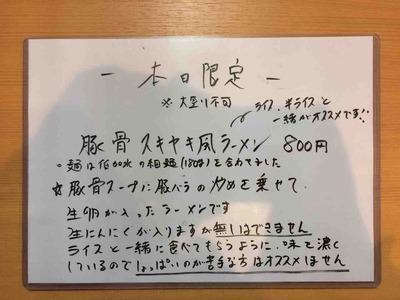 ー 本日限定 ー
※ 大盛り不可
ライス、半ライスと
一緒がオススメです!!
豚骨 スキヤキ風ラーメン 800円
・麺は低加水の細麺(180g)を合わせました
☆豚骨スープに豚バラの炒めを乗せて
生卵が入ったラーメンです
生にんにくが入りますが無しはできません
ライスと一緒に食べてもらうように、味を濃く
しているのでしょっぱいのが苦手な方はオススメしません